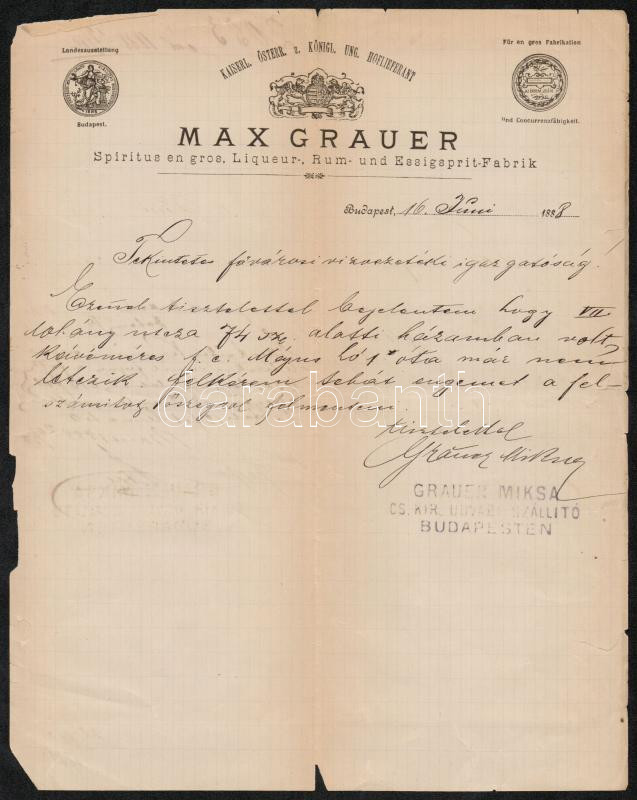 Landesausstellung
Budapest.
KAISERL. ÖSTERR. z. KÖNIGL. UNG. HOFLIEFERANT
Für en gros Fabrikation
Und Concurrenzfähigkeit.
MAX GRAUER
Spiritus en gros, Liqueur-, Rum- und Essigsprit-Fabrik
Budapest, 16. Juni 1888
Tekintetes fővárosi vizvezetéki igazgatóság!
Ezennel tisztelettel bejelentem hogy VII
dohány utcza 74 sz. alatti házamban volt
kávémérés f. é. Május hó 1 óta már nem
létezik. Felkérem tehát engemet a fel-
számitot összegtől felmenteni.
tisztelettel
Grauer Miksa
GRAUER MIKSA
CS. KIR. UDVARI SZÁLLITÓ
BUDAPESTEN
darabanth